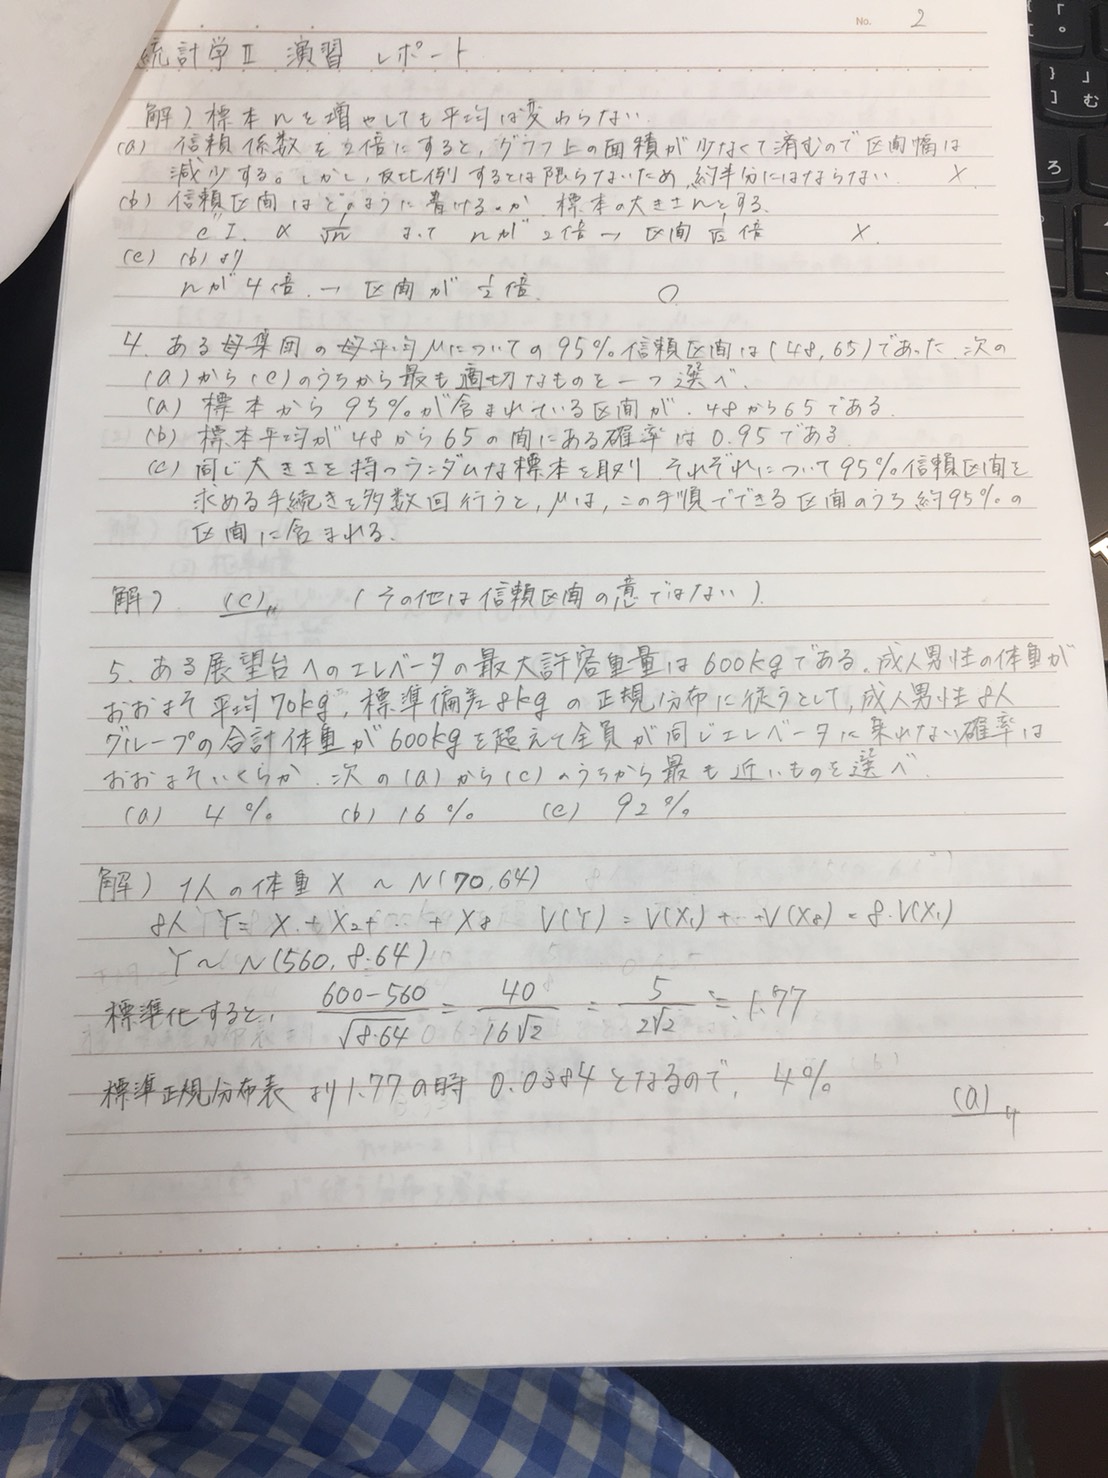 No. 2
統計学Ⅱ 演習 レポート
解) 標本nを増やしても平均は変わらない
(a) 信頼係数を2倍にすると、グラフ上の面積が少なくて済むので区間幅は
減少する。しかし、反比例するとは限らないため、約半分にはならない ×
(b) 信頼区間はどのように書けるか 標本の大きさnとする。
C.I. ∝ 1/√n よって nが2倍→区間1/√2倍 ×.
(c) (b)より
nが4倍.→区間が1/2倍. ○
4. ある母集団の母平均μについての95%信頼区間は(48,65)であった 次の
(a)から(c)のうちから最も適切なものを一つ選べ.
(a) 標本から95%が含まれている区間が、48から65である.
(b) 標本平均が48から65の間にある確率は0.95である.
(c) 同じ大きさを持つランダムな標本を取り それぞれについて95%信頼区間を
求める手続きを多数回行うと、μは、この手順でできる区間のうち約95%の
区間に含まれる.
解) (c)〃 (その他は信頼区間の意ではない).
5. ある展望台へのエレベータの最大許容重量は600kgである.成人男性の体重が
おおよそ平均70kg、標準偏差8kgの正規分布に従うとして、成人男性8人
グループの合計体重が600kgを超えて全員が同じエレベータに乗れない確率は
おおよそいくらか.次の(a)から(c)のうちから最も近いものを選べ.
(a) 4% (b) 16% (c) 92%
解) 1人の体重 X ~ N(70,64)
8人 Y = X₁+X₂+…+X₈ V(Y) = V(X₁)+…+V(X₈) = 8・V(X₁)
Y ~ N(560, 8・64)
標準化すると、 (600-560)/√(8・64) = 40/(16√2) = 5/(2√2) ≒ 1.77
標準正規分布表より1.77の時 0.0384となるので、4%
(a)〃